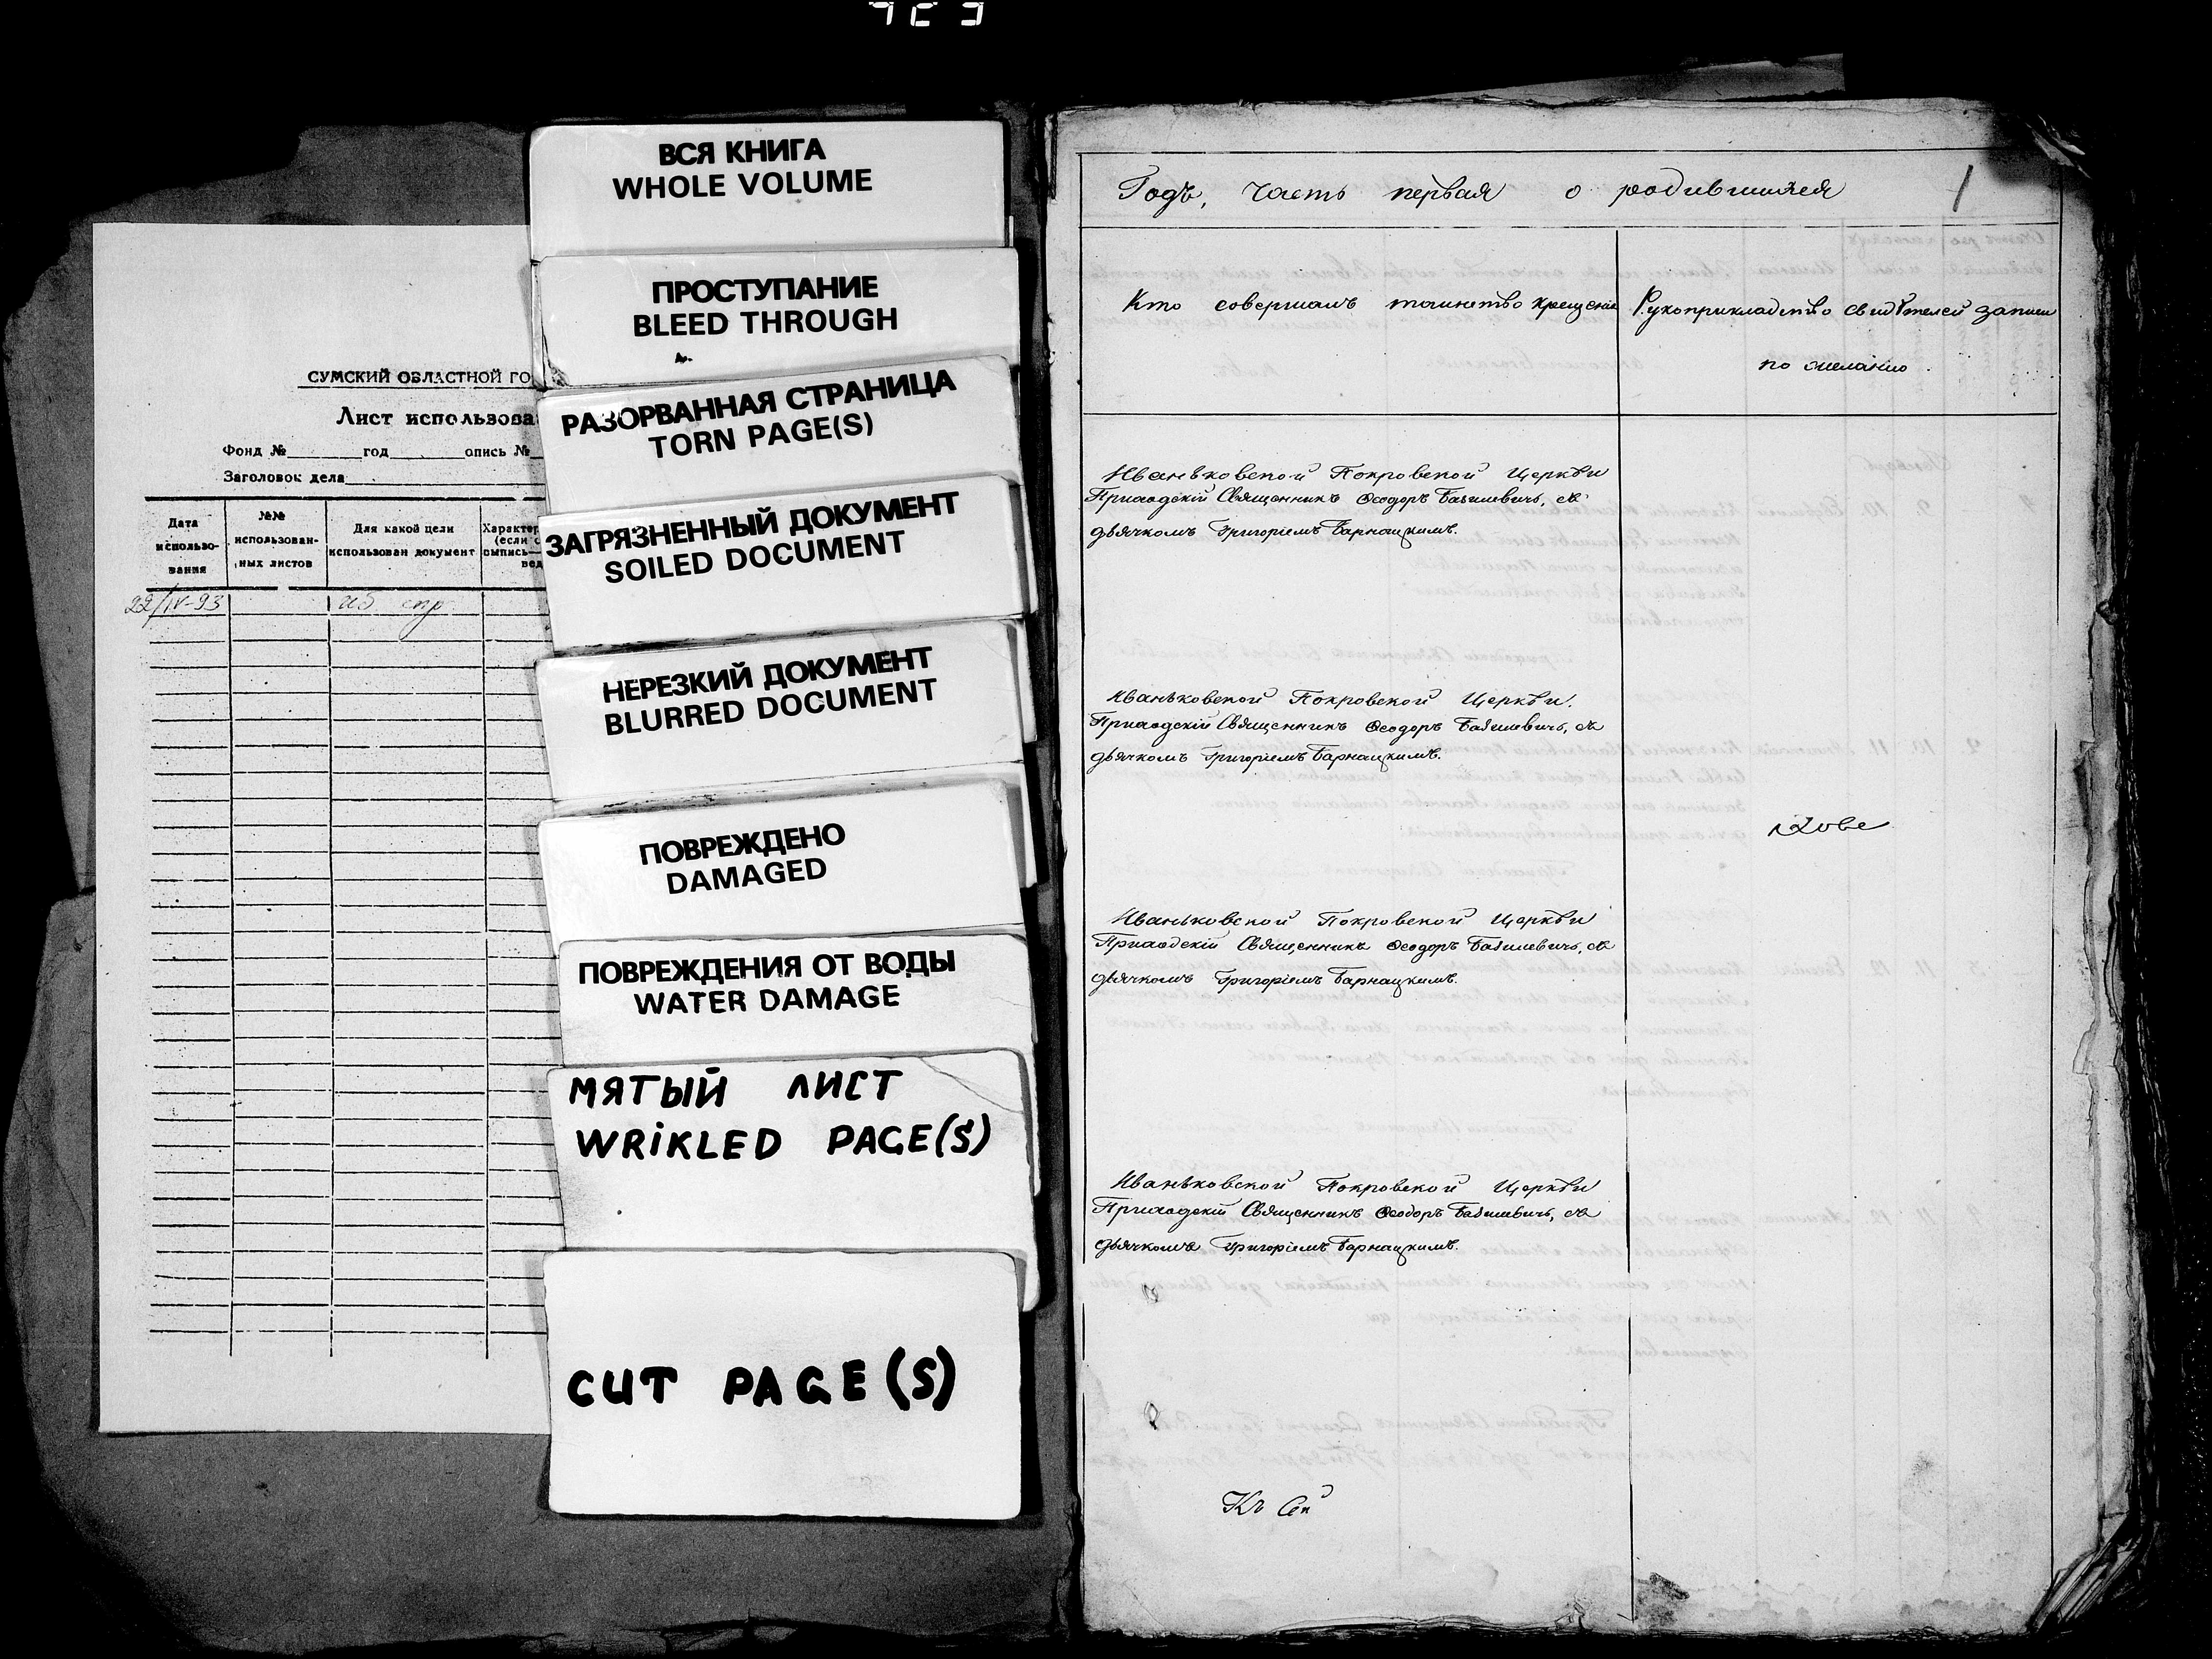 СУМСКИЙ ОБЛАСТНОЙ ГО
Лист использова
Фонд № год опись №
Заголовок дела
Дата использо-вания
№№ использован-ных листов
Для какой цели использован документ
Характер (если с выпись— вед
22/IV-93
ВСЯ КНИГА
WHOLE VOLUME
ПРОСТУПАНИЕ
BLEED THROUGH
РАЗОРВАННАЯ СТРАНИЦА
TORN PAGE(S)
ЗАГРЯЗНЕННЫЙ ДОКУМЕНТ
SOILED DOCUMENT
НЕРЕЗКИЙ ДОКУМЕНТ
BLURRED DOCUMENT
ПОВРЕЖДЕНО
DAMAGED
ПОВРЕЖДЕНИЯ ОТ ВОДЫ
WATER DAMAGE
МЯТЫЙ ЛИСТ
WRIKLED PAGE(S)
CUT PAGE(S)
Годъ, часть первая о родившихся 1
Кто совершалъ таинство крещенія
Рукоприкладство свидѣтелей записи
по желанію.
Иваньковской Покровской Церкви
Приходскій Священникъ Ѳеодоръ Базилевичь, съ
дьячкомъ Григоріемъ Барнацкимъ.
Иваньковской Покровской Церкви.
Приходскій Священникъ Ѳеодоръ Базилевичь, съ
дьячкомъ Григоріемъ Барнацкимъ.
Иваньковской Покровской Церкви
Приходскій Священникъ Ѳеодоръ Базилевичь, съ
дьячкомъ Григоріемъ Барнацкимъ.
Иваньковской Покровской Церкви
Приходскій Священникъ Ѳеодоръ Базилевичь, съ
дьячкомъ Григоріемъ Барнацкимъ.
Къ Сей